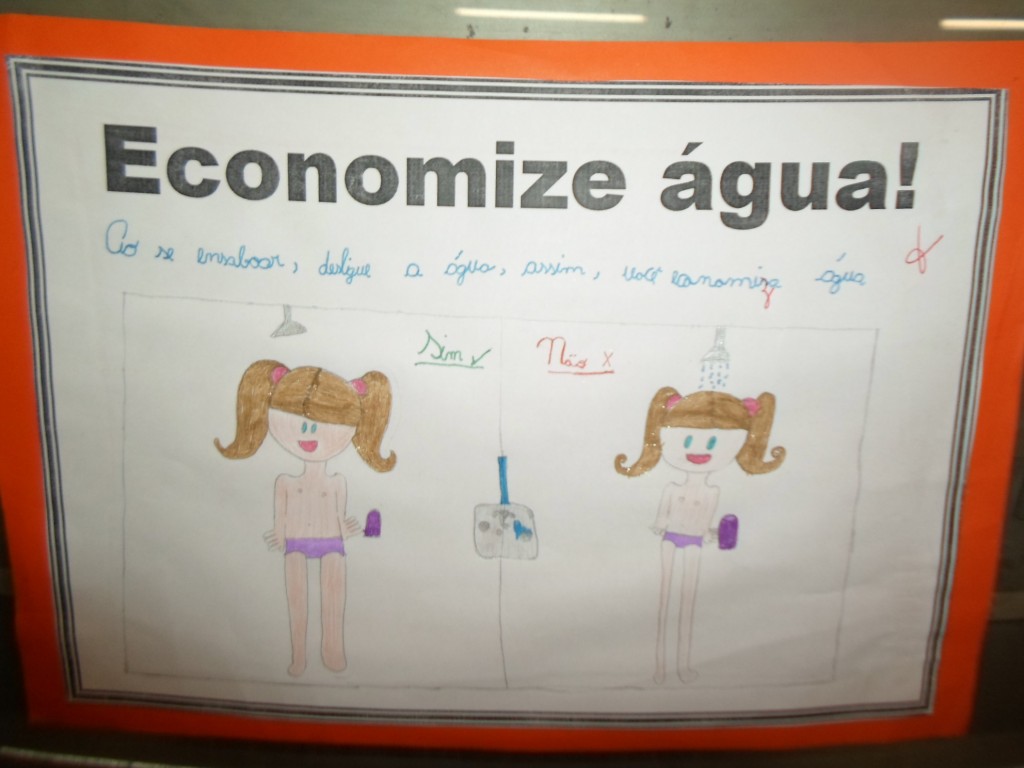 Economize água!
Ao se ensaboar, desligue a água, assim, você economiza água
Sim
Não X